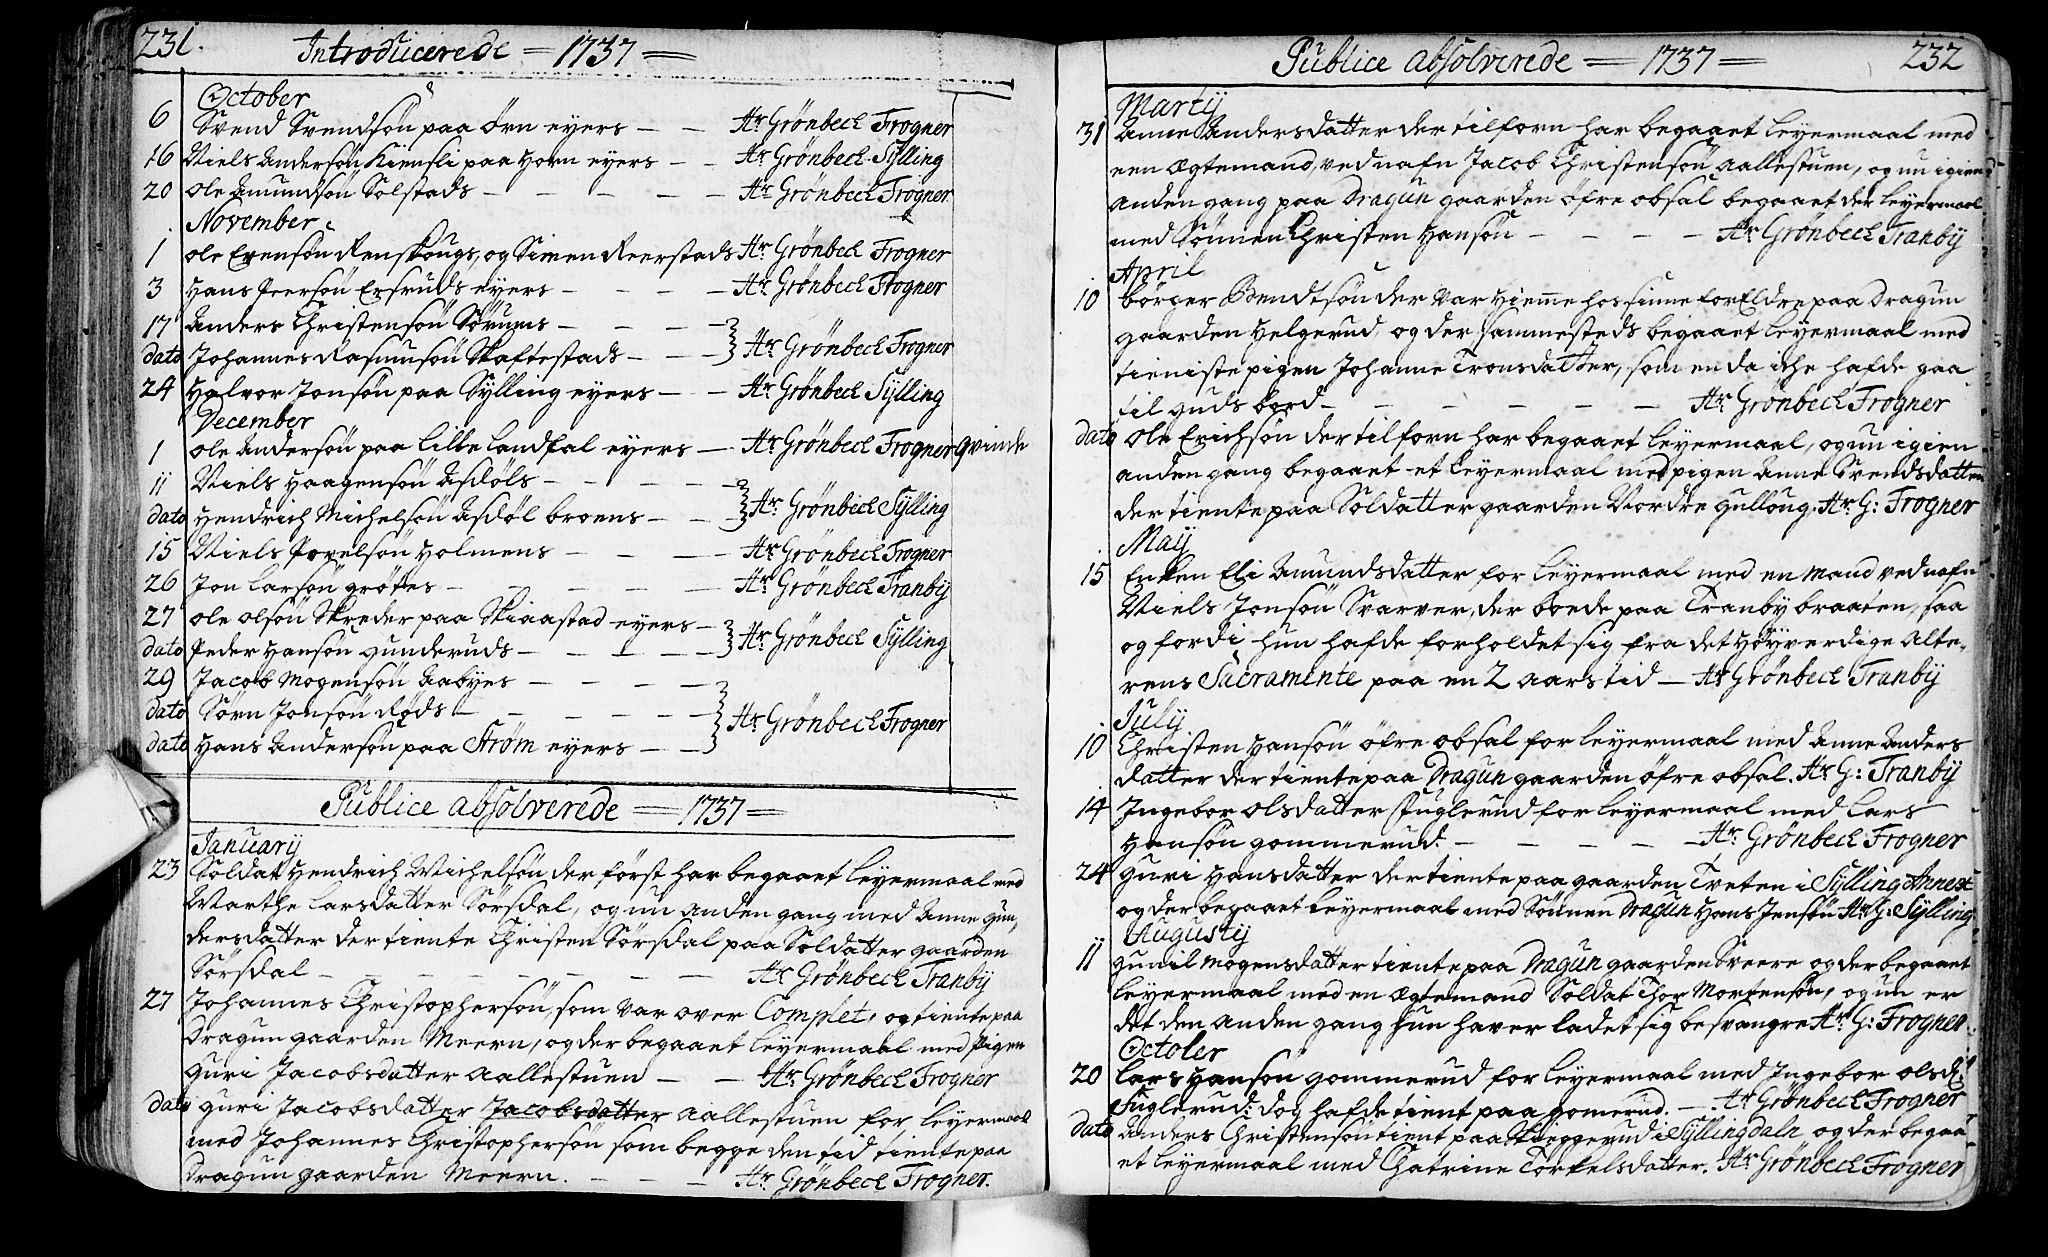 231.
Introducerede = 1737 =
October
6 Svend Svendsøn paa Ørn eyers — — Hr Grønbech Frogner
16 Niels Andersøn Kiensli paa Horn eyers — — Hr Grønbech Sylling
20 Ole Amundsøn Solstads — — — — Hr Grønbech Frogner
November
1 Ole Evensøn Renskougs, og Simen Reerstads Hr Grønbech Frogner
3 Hans Peersøn Ersruds eyers — — — Hr Grønbech Frogner
17 Anders Christensøn Sørums — — —
dato Johannes Rasmusøn Skaftestads — — — Hr Grønbech Frogner
24 Halvor Jonsøn paa Sylling eyers — — Hr Grønbech Sylling
December
1 Ole Andersøn paa Lille Landfal eyers — Hr Grønbech Frogner qvinde
11 Niels Haagensøn Asdøls — — — —
dato Hendrich Michelsøn Asdøl broens — — Hr Grønbech Sylling
15 Niels Povelsøn Holmens — — — Hr Grønbech Frogner
26 Jon Larsøn grøttes — — — — Hr Grønbech Tranby
27 Ole Olsøn Skreder paa Skiaastad eyers —
dato Peder Hansøn Gunderuds — — — — Hr Grønbech Sylling
29 Jacob Mogensøn Aabyes — — — —
dato Sørn Jonsøn Røds — — — — —
dato Hans Andersøn paa Strøm eyers — — Hr Grønbech Frogner
Publice absolverede = 1737 =
January
23 Soldat Hendrich Michelsøn der først har begaaet Leyermaal med
Marthe Larsdatter Sørsdal, og nu anden gang med Anne Gun,,
dersdatter der tiente Christen Sørsdal paa Soldatter gaarden
Sørsdal — — — — — — Hr Grønbech Tranby
27 Johannes Christophersøn, som var over Complet, og tiente paa
Dragun gaarden Meern, og der begaaet Leyermaal med Pigen
Guri Jacobsdatter Aallestuen — — Hr Grønbech Frogner
dato Guri Jacobsdatter Jacobsdatter Aallestuen for Leyermaal
med Johannes Christophersøn som begge den tid tiente paa
Dragun gaarden Meern. — — — Hr Grønbech Frogner.
Publice absolverede = 1737 = 232
Martij
31 Anne Andersdatter der tilforn har begaaet Leyermaal med
een Ægtemand, ved nafn Jacob Christensøn Aallestuen, og nu igien
anden gang paa Dragun gaarden Øfre Obsal begaaet der Leyermaal
med Sønnen Christen Hansøn — — — — Hr Grønbech Tranby
April
10 Børger Bendtsøn der var hieme hos sinne forEldre paa Dragun
gaarden Helgerud, og der sammesteds begaaet Leyermaal med
tieniste pigen Johanne Tronsdatter, som enda icke hafde gaa
til Guds bord — — — — — — Hr Grønbech Frogner
dato Ole Erichsøn der tilforn har begaaet Leyermaal, og nu igien
anden gang begaaet et Leyermaal med pigen Anne Svendsdatter
der tiente paa Soldatter gaarden Nordre Hulloug. Hr G: Frogner
Maij
15 Enken Eli Amundsdatter for Leyermaal med en Mand ved nafn
Niels Jonsøn Svarver, der boede paa Tranby braaten, saa
og fordi hun hafde forholdet sig fra det Høyverdige Alte,,
rens Sacramente paa en 2 aars tid — Hr Grønbech Tranby
July
10 Christen Hansøn Øfre Obsal for Leyermaal med Anne Anders
datter der tiente paa Dragun gaarden Øfre Obsal. Hr G: Tranby
14 Ingebor Olsdatter Fuglerud for Leyermaal med Lars
Hansøn Gommerud. — — — — Hr. Grønbech Frogner
24 Guri Hansdatter der tiente paa gaarden Tveten i Sylling Annex
og der begaaet Leyermaal med Sønnen Dragun Hans Jensøn Hr G: Sylling
Augustij
11 Gunil Mogensdatter tiente paa Dragun gaarden Sveere og der begaaet
Leyermaal med en Ægtemand Soldat Thor Mortensøn, og nu er
det den anden gang hun haver ladet sig besvangre Hr G: Frogner
October
20 Lars Hansøn Gommerud for Leyermaal med Ingebor Olsd
Fuglerud: dog hafde tient paa Gomerud. — Hr Grønbech Frogner
dato Anders Christensøn tient paa Skieggerud i Syllingdaln, og der begaa
et Leyermaal med Chatrine Torkelsdatter. Hr Grønbech Frogner